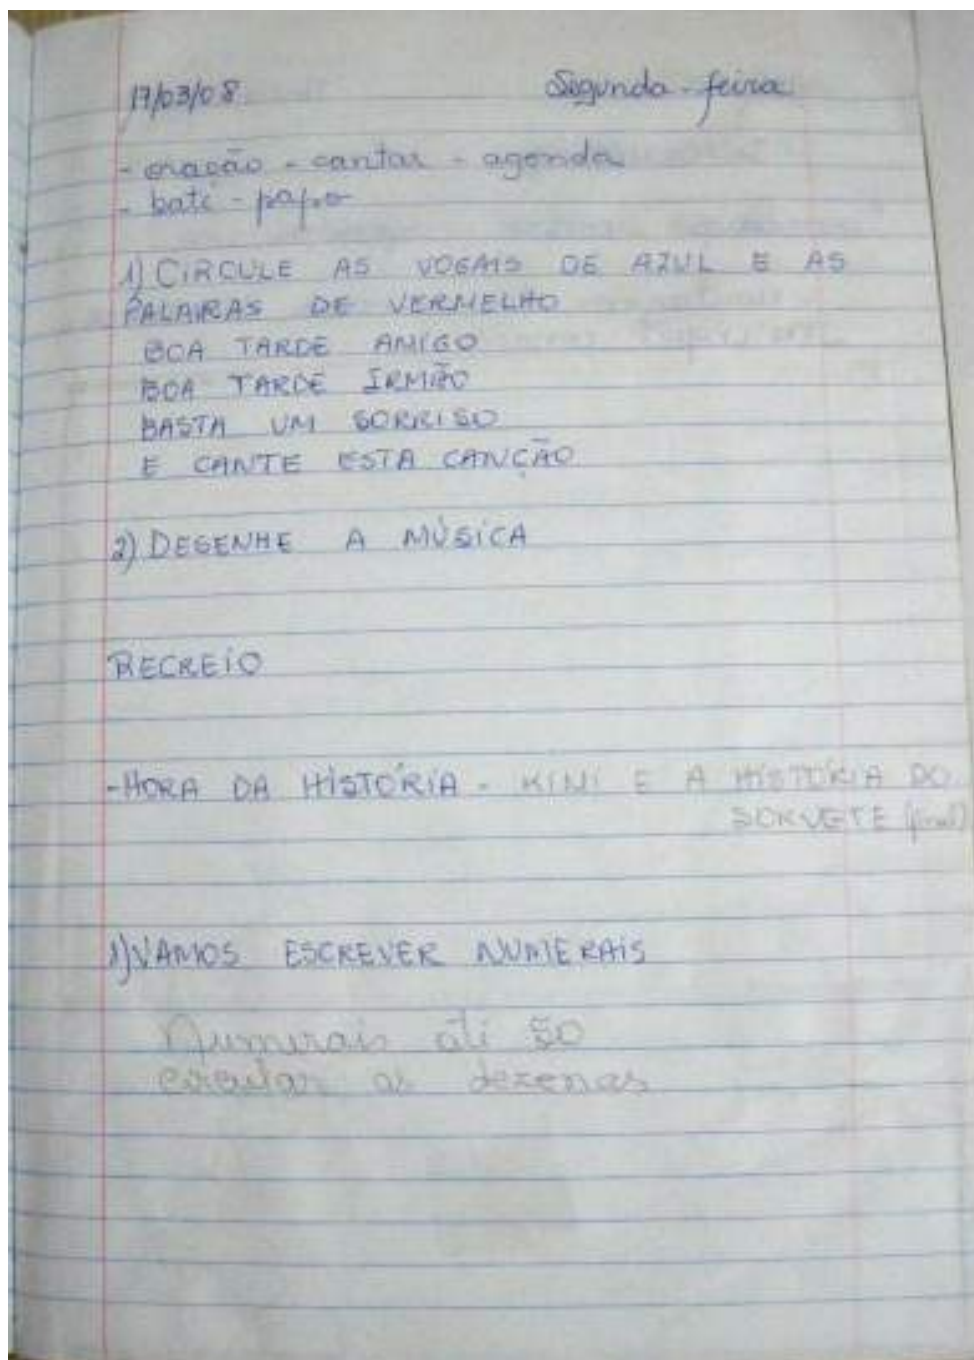 17/03/08 Segunda-feira
- oração - cantar - agenda
- bate - papo
1) CIRCULE AS VOGAIS DE AZUL E AS
PALAVRAS DE VERMELHO
BOA TARDE AMIGO
BOA TARDE IRMÃO
BASTA UM SORRISO
E CANTE ESTA CANÇÃO
2) DESENHE A MÚSICA
RECREIO
- HORA DA HISTÓRIA - KINI E A HISTÓRIA DO
SORVETE (final)
1) VAMOS ESCREVER NUMERAIS
Numerais até 50
circular as dezenas